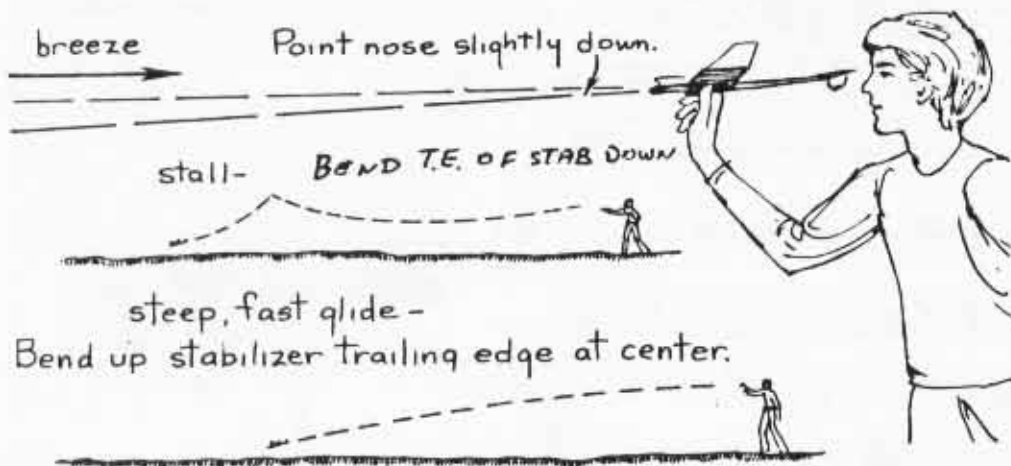 breeze
Point nose slightly down.
stall-
BEND T.E. OF STAB DOWN
steep, fast glide -
Bend up stabilizer trailing edge at center.